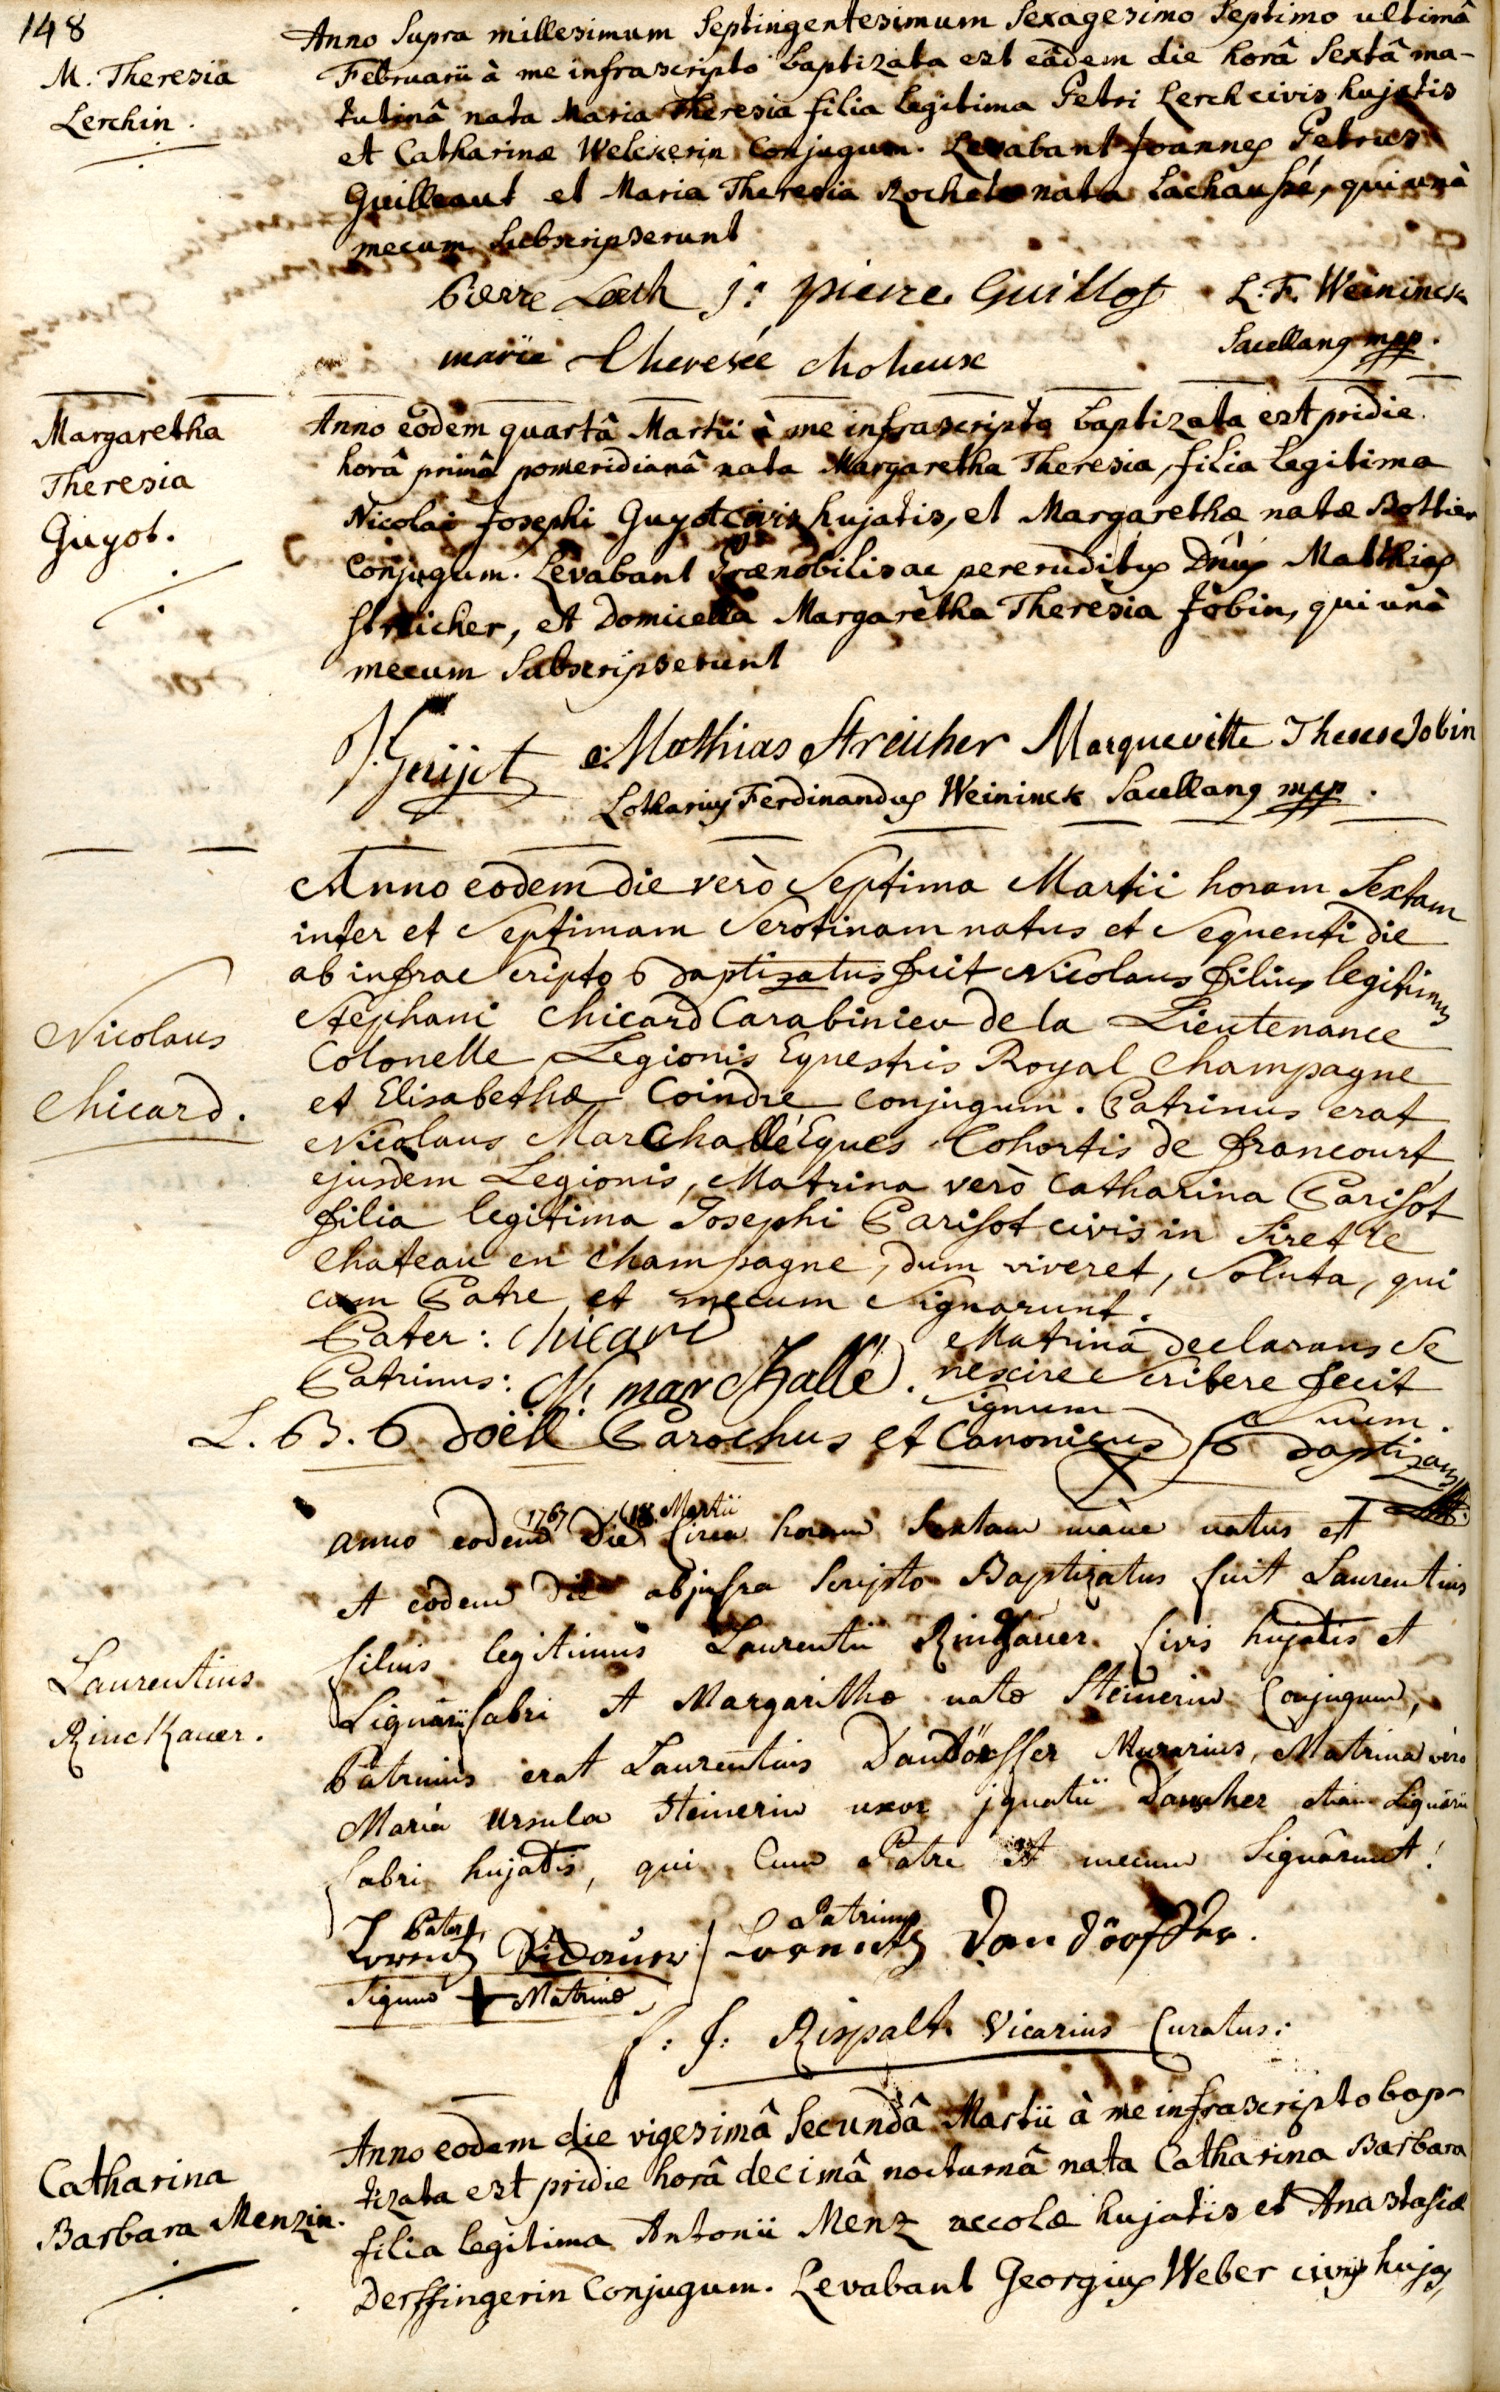 148
M. Theresia
Lerchin.
Anno Supra millesimum Septingentesimum Sexagesimo Septimo ultimâ
Februarii à me infrascripto baptizata est eâdem die horâ Sextâ ma-
tutinâ nata Maria Theresia filia legitima Petri Lerch civis hujatis
et Catharinæ Welckerin Conjugum. Levabant Joannes Petrus
Guilleaut et Maria Theresia Rochet nata Lachaussé, qui unà
mecum Subscripserunt
Pierre Lerch J: pierre Guillot L. F. Weininck
marie Theresée choheuse Sacellanus mpp.
Margaretha
Theresia
Guyot.
Anno eodem quartâ Martii à me infrascripto baptizata est pridie
horâ primâ pomeridianâ nata Margaretha Theresia, filia legitima
Nicolai Josephi Guyot civis hujatis, et Margarethæ natæ Bottier
Conjugum. Levabant Prænobilis ac pereruditus Dnûs Matthias
Streicher, et Domicella Margaretha Theresia Jobin, qui unà
mecum Subscripserunt
Guijot Mathias Streicher Marqueritte Therese Jobin
Lotharius Ferdinandus Weininck Sacellanus mpp.
Nicolaus
Chicard.
Anno eodem die verò Septima Martii horam Sextam
inter et Septimam Serotinam natus et Sequenti die
ab infrae Scripto baptisatus fuit Nicolaus filius legitimus
Stephani Chicard Carabinieu de la Lieutenance
Colonelle Legionis Equestris Royal Champagne
et Elisabethæ Coindre Conjugum. Patrinus erat
Nicolaus Marchallé Eques Cohortis de francourt
ejusdem Legionis, Matrina verò Catharina Parisot
filia legitima Josephi Parisot civis in Siret le
Chateau en Champagne, dum viveret, Soluta, qui
cum Patre et mecum Signarunt.
Pater: Chicard
Matrina declarans Se
Patrinus: N: marchallé. nescire Scribere fecit
Signum Suum.
L. B. Boell Parochus et Canonicus baptizans
Laurentius
Rinckauer.
anno eodem 1767 die 18 Martii Circa horam Sextam mane natus et
et eodem die ab jnfra Scripto Baptizatus fuit Laurentius
filius legitimus Laurentii Rinckauer Civis hujatis et
Lignarii fabri et Margarithæ natæ Steinerin Conjugum,
Patrinus erat Laurentius Dandörffer Murarius, Matrina vèro
Maria Ursula Steinerin uxor jgnatii Dauscher etiam Lignarii
fabri hujatis, qui Cum Patre et mecum Signârunt!
Pater Patrinus
Lorentz Lorentz Dandörffer.
Signum + Matrinæ
f: J: Rispalt Vicarius Curatus:
Catharina
Barbara Menzin.
Anno eodem die vigesimâ Secundâ Martii à me infrascripto bap-
tizata est pridie horâ decimâ nocturnâ nata Catharina Barbara
filia legitima Antonii Menz accolæ hujatis et Anastasiæ
Derffingerin Conjugum. Levabant Georgius Weber civis hujas,